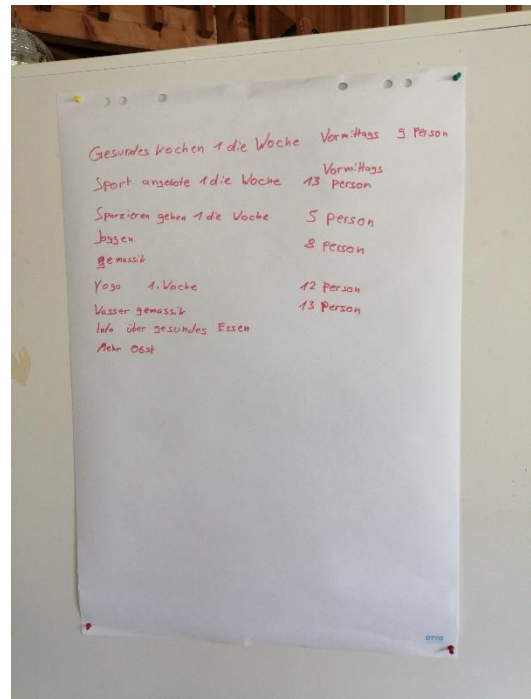 Gesundes kochen 1 die Woche Vormittags 9 Person
Sport angebote 1 die Woche 13 Vormittags Person
Sparzieren gehen 1 die Woche 5 Person
Joggen 8 Person
gemassik
Yoga 1. Woche 12 Person
Wasser gemassik 13 Person
Info über gesundes Essen
Mehr Obst
OTTO